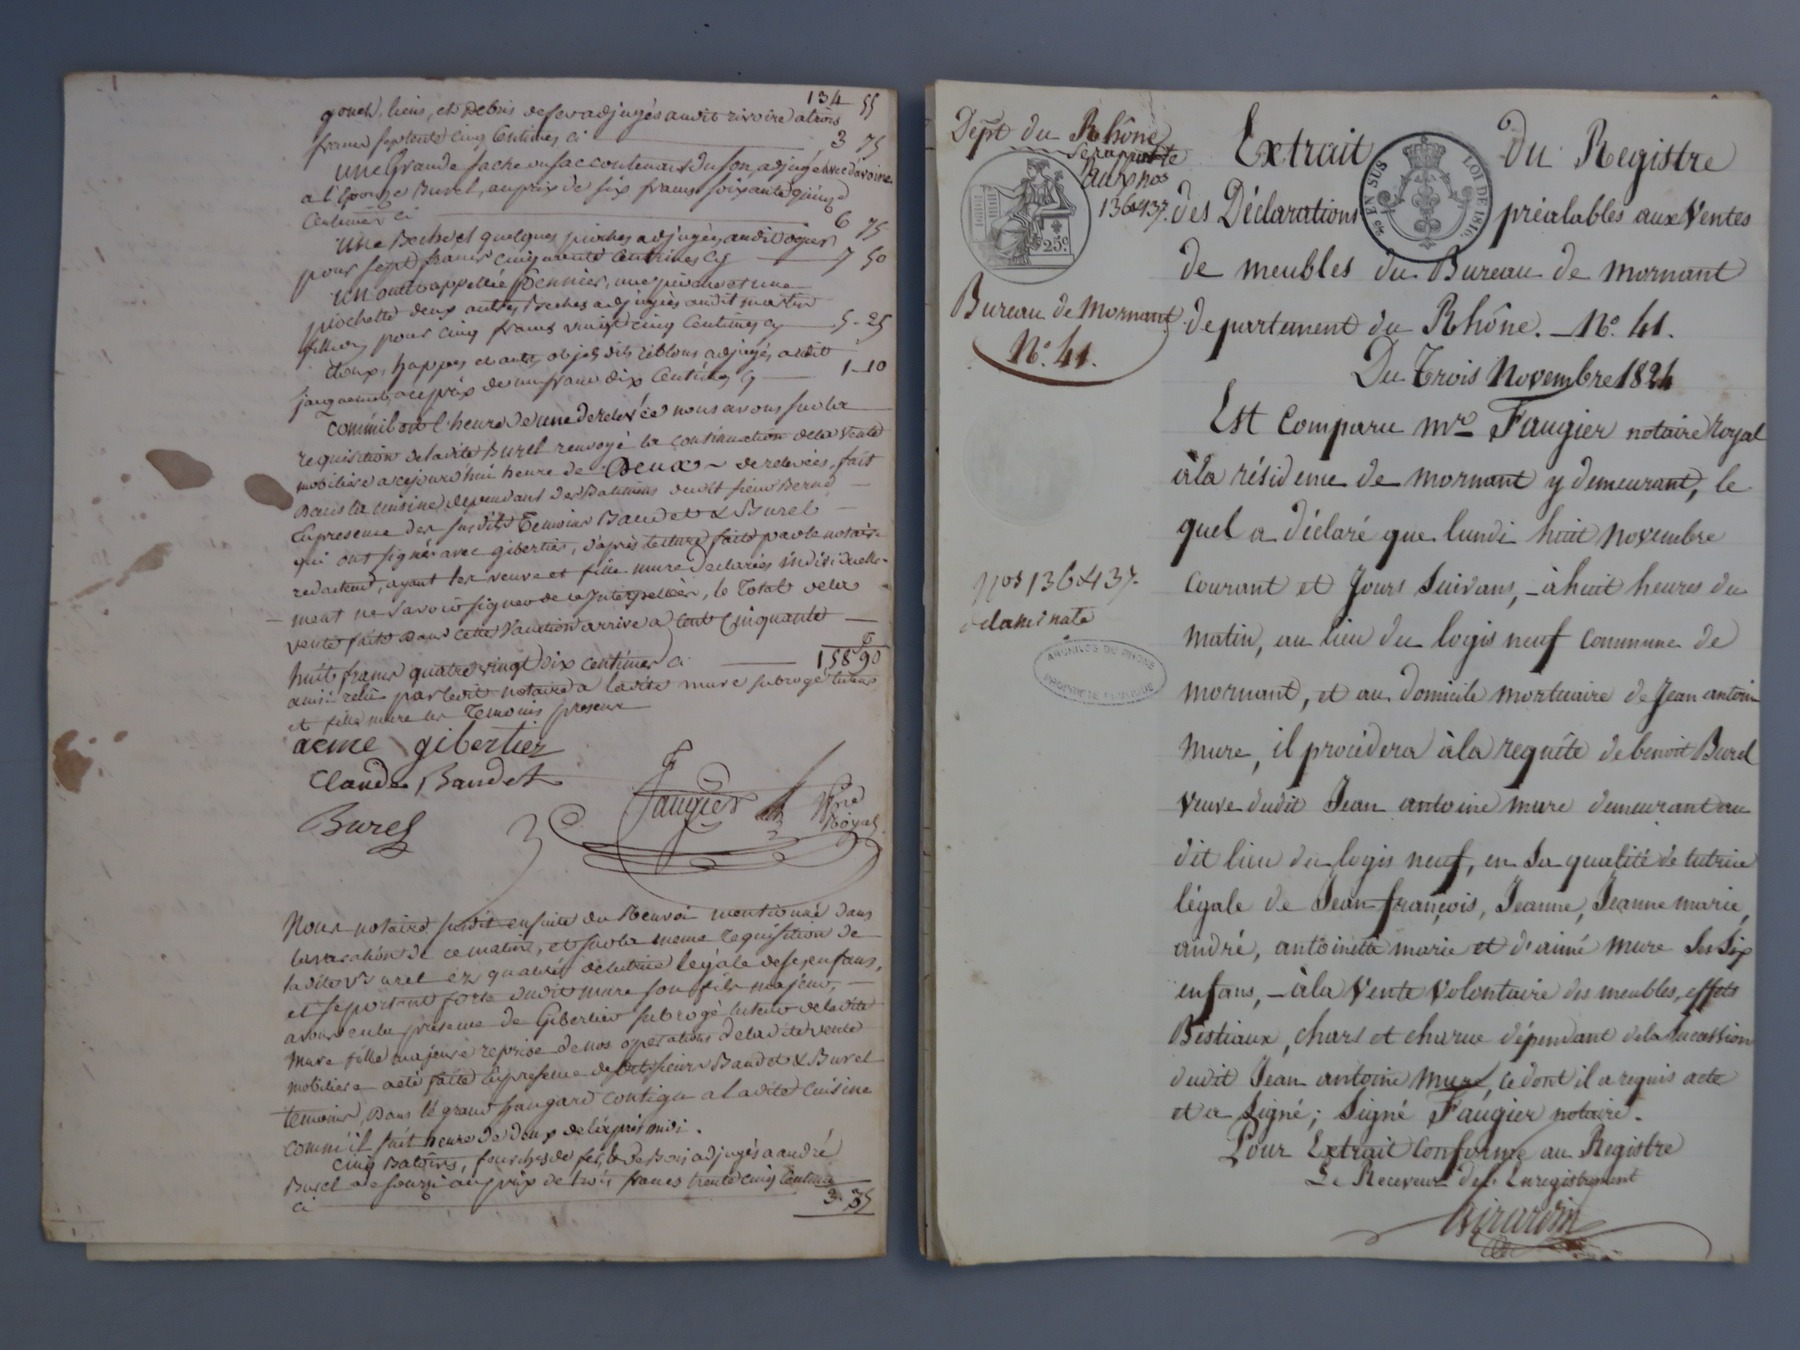 134 55
gonds, liens, et debris de fer adjugés audit rivoire a trois
francs septente cinq Centimes ci 3 75
une Grande sache ou sac contenant du son, adjugé avec d'avoine
a l'épouse Burel, au prix de six francs soixante quinze
Centimes ci 6 75
une Beche et quelques pioches adjugées audit
pour sept francs cinquante Centimes cy 7 50
un outil appellée une pioche et une
piochette deux autres Beches adjugées audit martin
pour cinq francs vingt cinq Centimes cy 5-25
happes et autres objets dits riblons adjugés audit
jacquemet, au prix de un franc dix Centimes cy 1-10
comme il est l'heure de une de relevée nous avons sur la
requisition de la dite Burel renvoyé la continuation de la vente
mobiliere a cejourd'hui heure de Deux de relevée, fait
Dans la cuisine dependant des Batimens dudit sieur Berne
En presence des susdits Temoins Baudet & Burel
qui ont signé avec gibertier, d'après lecture faite par le notaire
redacteur, ayant les veuve et fille mure declarées individuelle-
ment ne savoir signer de ce Interpellées, le Total de la
vente faite Dans cette Vacation arrive a Cent Cinquante
huit francs quatre vingt dix centimes ci 158 90
ainsi relu par ledit notaire a ladite mure subrogé tuteur
et fille mure les Temoins presens
aemé gibertier
Claude Baudet
Burel
Faugier
Nre
Royal
Nous notaire susdit ensuite du Renvoi mentionné dans
la vacation de ce matin, et sur la meme requisition de
la dite Ve Burel ez qualités de tutrice legale de ses enfans,
et se portant forte dudit mure son fils majeur,
avons en la presence de Gibertier subrogé tuteur de la dite
Mure fille majeure reprise de nos operations de la dite vente
mobiliere a été faite En presence desdits sieurs Baudet & Burel
temoins, Dans le grand hangard contigu a la dite Cuisine
comme il fait heure de deux de l'après midi.
cinq Batoires, fourches de fer, & de Bois adjugés a andré
Burel au prix de trois francs trente cinq Centimes
ci 3-35
Dépt du Rhône
se rapporte
aux nos
136 & 437.
25c
EN SUS
LOI DE 1816.
Extrait du Registre
des Déclarations préalables aux Ventes
de meubles du Bureau de Mornant
departement du Rhône. - No. 41.
Bureau de Mornant
No. 41.
Du Trois Novembre 1824
Est Comparu mre Faugier notaire Royal
à la résidence de Mornant y demeurant, le
quel a déclaré que lundi huit Novembre
courant et Jours Suivans, - à huit heures du
matin, au lieu du logis neuf Commune de
mornant, et au domicile mortuaire de Jean antoine
mure, il procédera à la requête de benoit Burel
veuve dudit Jean antoine mure demeurant au
dit lieu du logis neuf, en Sa qualité de tutrice
légale de Jean françois, Jeanne, Jeanne marie,
andré, antoinette marie et d'aimé mure Ses Six
enfans, - à la Vente Volontaire des meubles, effets
Bestiaux, chars et charue dépendant de la Succession
dudit Jean antoine Mure, ce dont il a requis acte
et a Signé; Signé Faugier notaire.
Pour Extrait Conforme au Registre
Le Receveur de l'Enregistrement
Girardin
Nos 136 & 437.
de la minute
ARCHIVES DU RHÔNE
PROPRIÉTÉ PUBLIQUE